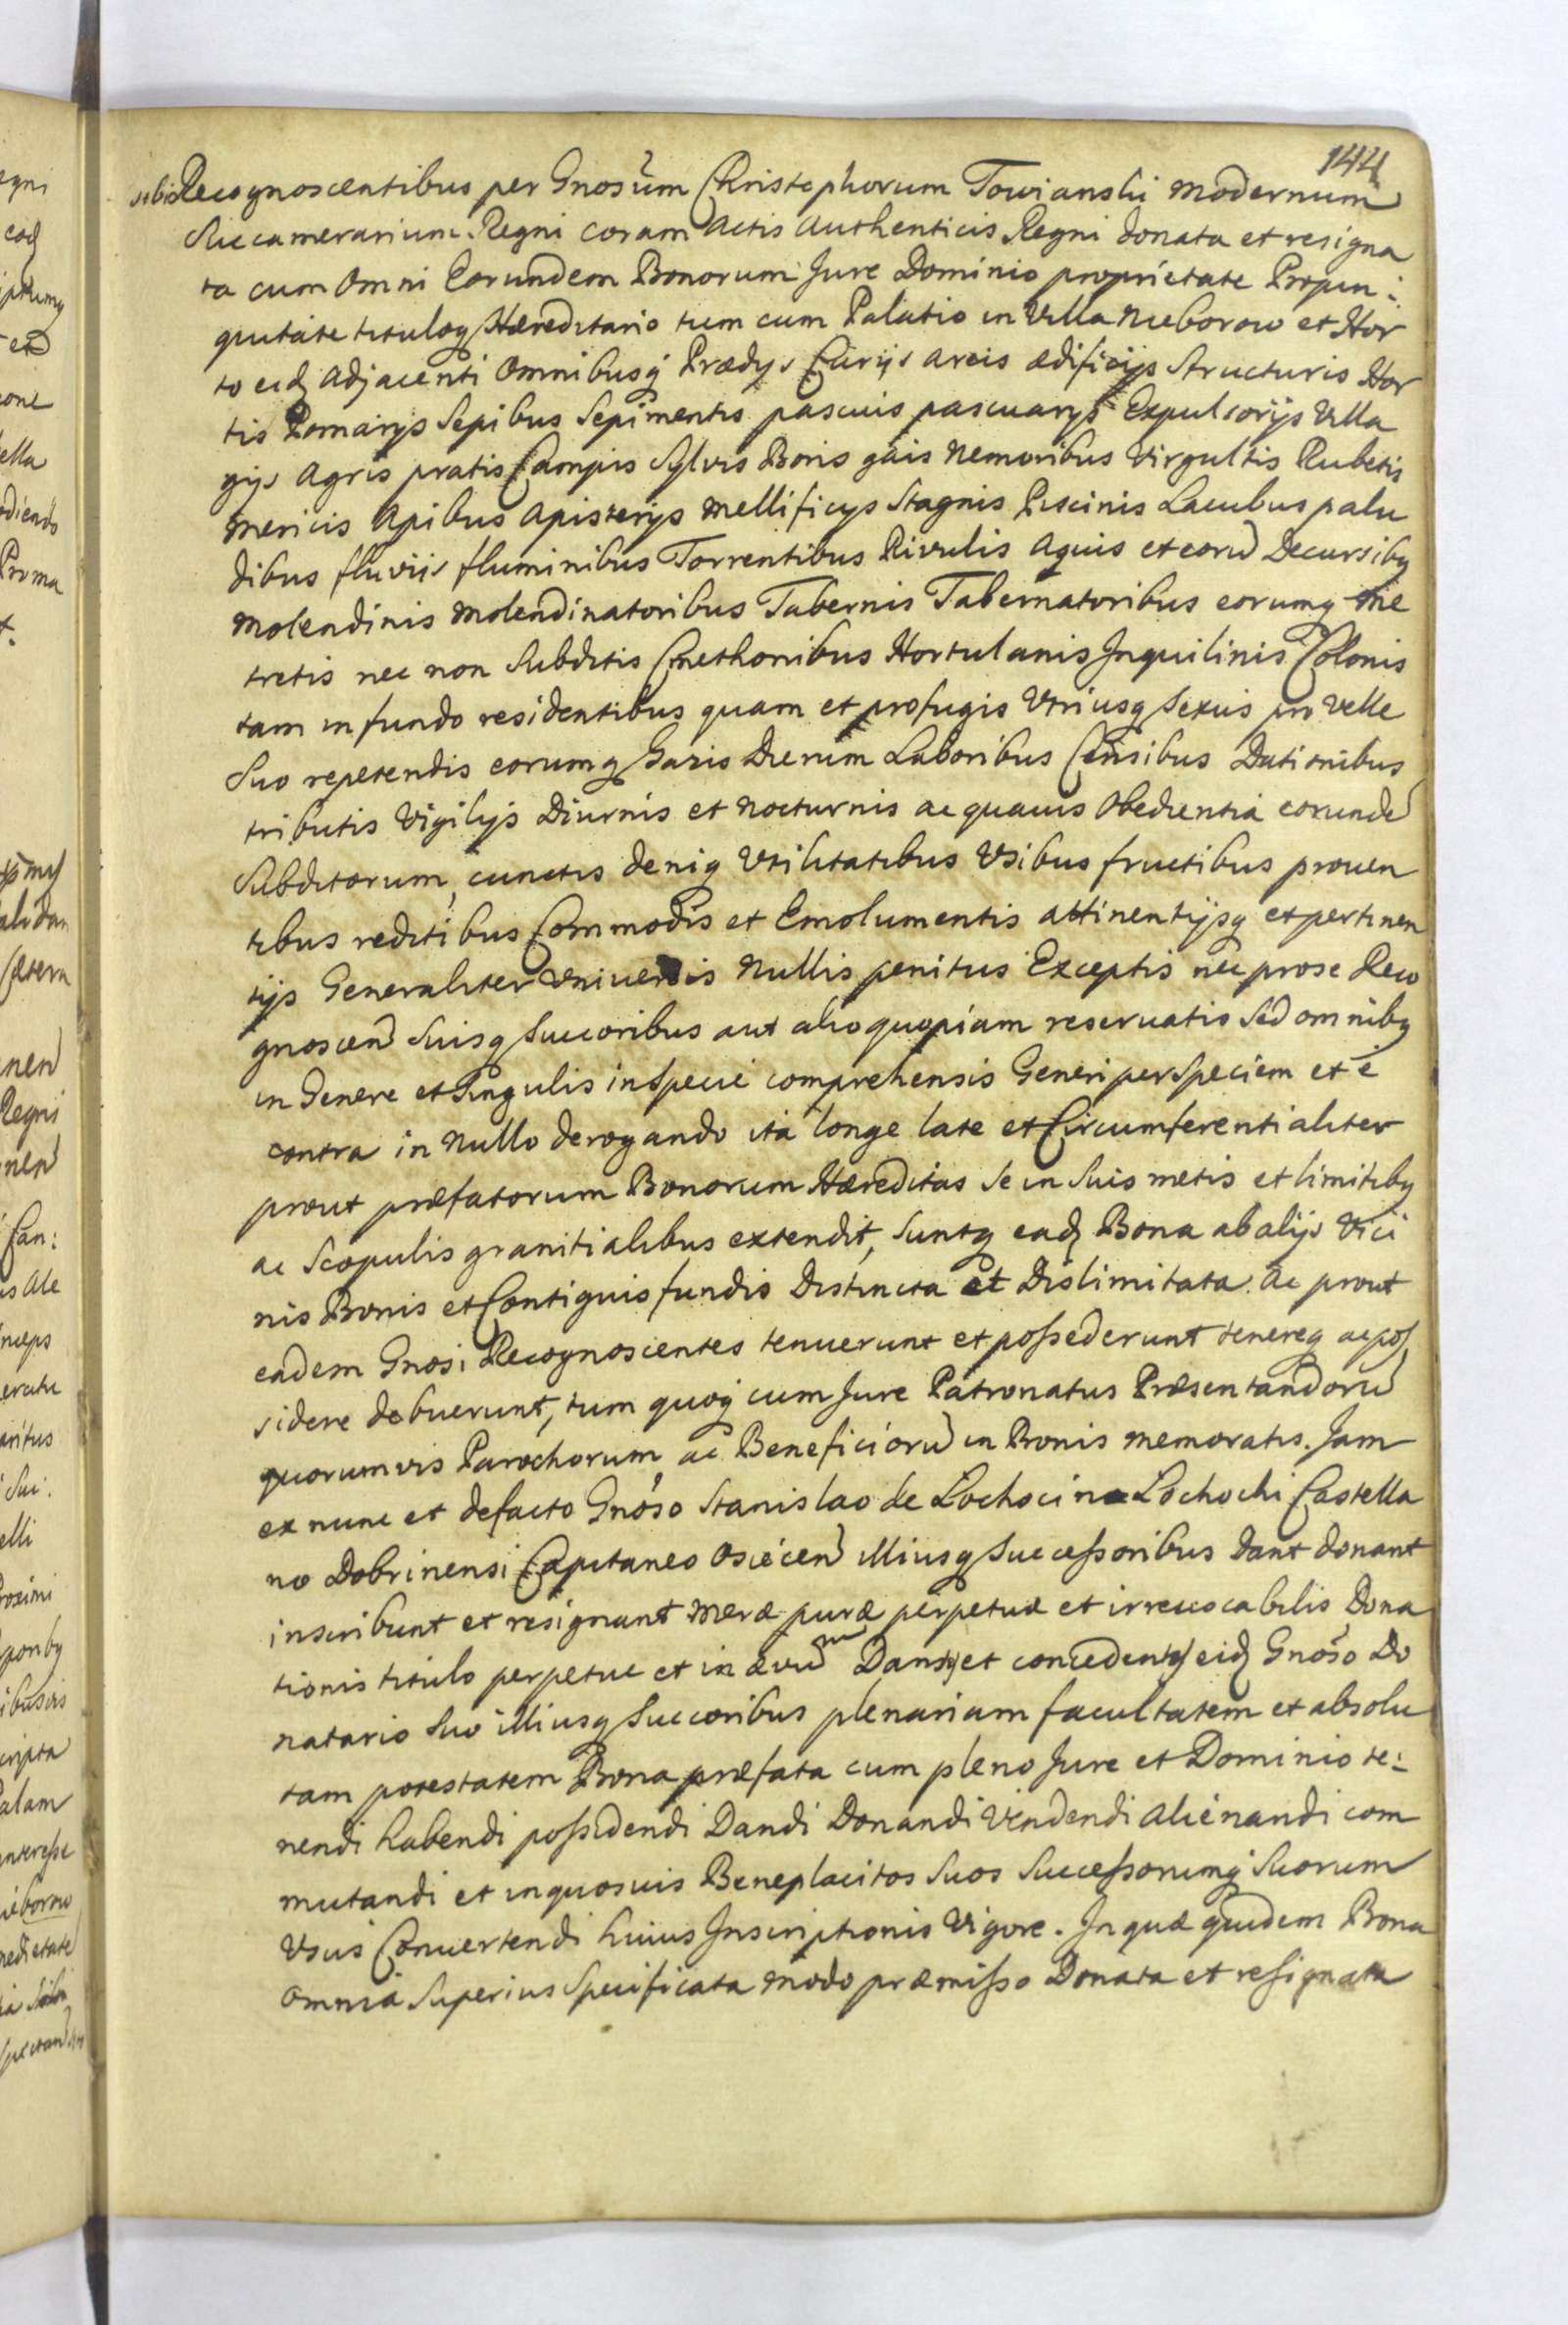 144
sibi Recognoscentibus per Gnosum Christophorum Towianski modernum
Succamerarium Regni coram Actis Authenticis Regni donata et resigna
ta cum Omni Eorundem Bonorum Jure Dominio proprietate Propin:
quitate tituloq Hæreditario tum cum Palatio in Villa Nieborow et Hor
to eid Adjacenti Omnibusq Prædys Curijs areis ædificijs Structuris Hor
tis Pomarijs Sepibus Sepimentis pascuis pascuarys Expulsorijs Villa
gijs Agris pratis Campis Sylvis Boris gais Nemoribus Virgultis Rubetis
Mericis Apibus Apisterijs Mellificijs Stagnis Piscinis Lacubus palu
dibus fluviis fluminibus Torrentibus Rivulis Aquis et eoru Decursibq
Molendinis Molendinatoribus Tabernis Tabernatoribus eorumq Me
tretis nec non Subditis Cmethonibus Hortulanis Inquilinis Colonis
tam in fundo residentibus quam et profugis Utriusq Sexus pro Velle
Suo repetendis eorumq Gazis Dierum Laboribus Censibus Dationibus
tributis Vigilijs Diurnis et Nocturnis ac quauis Obedientia eorunde
Subditorum, cunctis deniq Utilitatibus Usibus fructibus prouen
tibus reditibus Commodis et Emolumentis attinentijsq et pertinen
tijs Generaliter Vniuersis Nullis penitus Exceptis nec pro se Reco
gnoscen Suisq Succoribus aut alio quopiam reseruatis Sed omnibq
in Genere et Singulis in Specie comprehensis Generi per Speciem et e
contra in Nullo derogando ita longe late et Circumferentialiter
prout præfatorum Bonorum Hæreditas Se in Suis metis et limitibq
ac Scopulis granitialibus extendit, Suntq ead Bona ab alijs Vici
nis Bonis et Contiguis fundis Distincta et Dislimitata. Ac prout
eadem Gnosi Recognoscentes tenuerunt et possederunt tenereq ac pos
sidere debuerunt, tum quoq cum Jure Patronatus Præsentandoru
quorumvis Parochorum ac Beneficioru in Bonis memoratis. Jam
ex nunc et defacto Gnoso Stanislao de Lochocin Lochocki Castella
no Dobrinensi Capitaneo Osiecen illiusq Successoribus Dant donant
inscribunt et resignant meræ puræ perpetuæ et irreuocabilis Dona
tionis titulo perpetue et in ævu Dantes et concedentes eid Gnoso Do
natario Suo illiusq Succoribus plenariam facultatem et absolu
tam potestatem Bona præfata cum pleno Jure et Dominio te:
nendi habendi possidendi Dandi Donandi Vendendi Alienandi com
mutandi et in quosuis Beneplacitos Suos Successorumq Suorum
Usus Conuertendi huius Inscriptionis Vigore. In quæ quidem Bona
Omnia Superius Specificata modo præmisso Donata et resignata